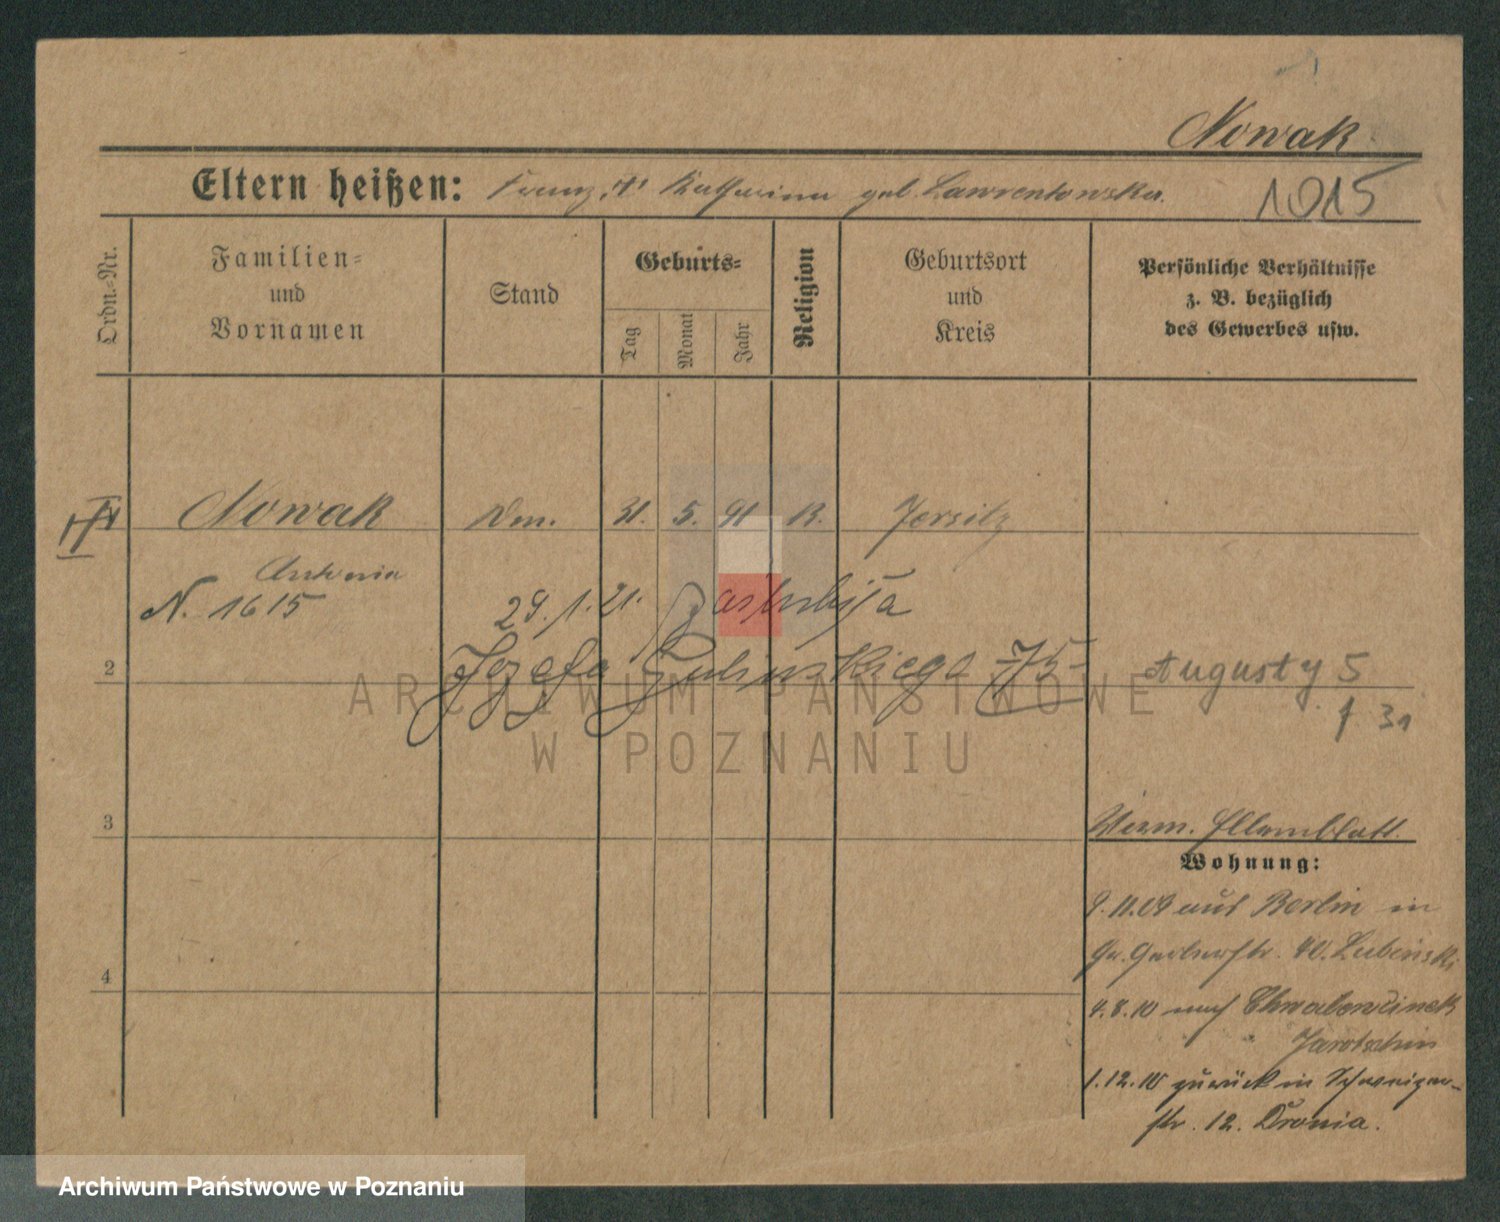 Nowak
Eltern heißen: Franz, Katharina geb. Lawrentowska.
1015
Ordn.-Nr.
Familien-
und
Vornamen
Stand
Geburts-
Tag
Monat
Jahr
Religion
Geburtsort
und
Kreis
Persönliche Verhältnisse
z. B. bezüglich
des Gewerbes usw.
Nowak 31. 5. 91 K. Jersitz
Antonia
N. 1615
29./1.21. zaślubiła
2 Józefa Lubinskiego 75 Augusty 5
f. 31
ARCHIWUM PAŃSTWOWE
W POZNANIU
3
Verm. Elternblatt.
Wohnung:
9.11.09 aus Berlin in
Gr. Gerberstr. 40. Lubinski
4
4.8.10 nach
Jarotschin
1.12.10 zurück in
str. 12. Kronia.
Archiwum Państwowe w Poznaniu